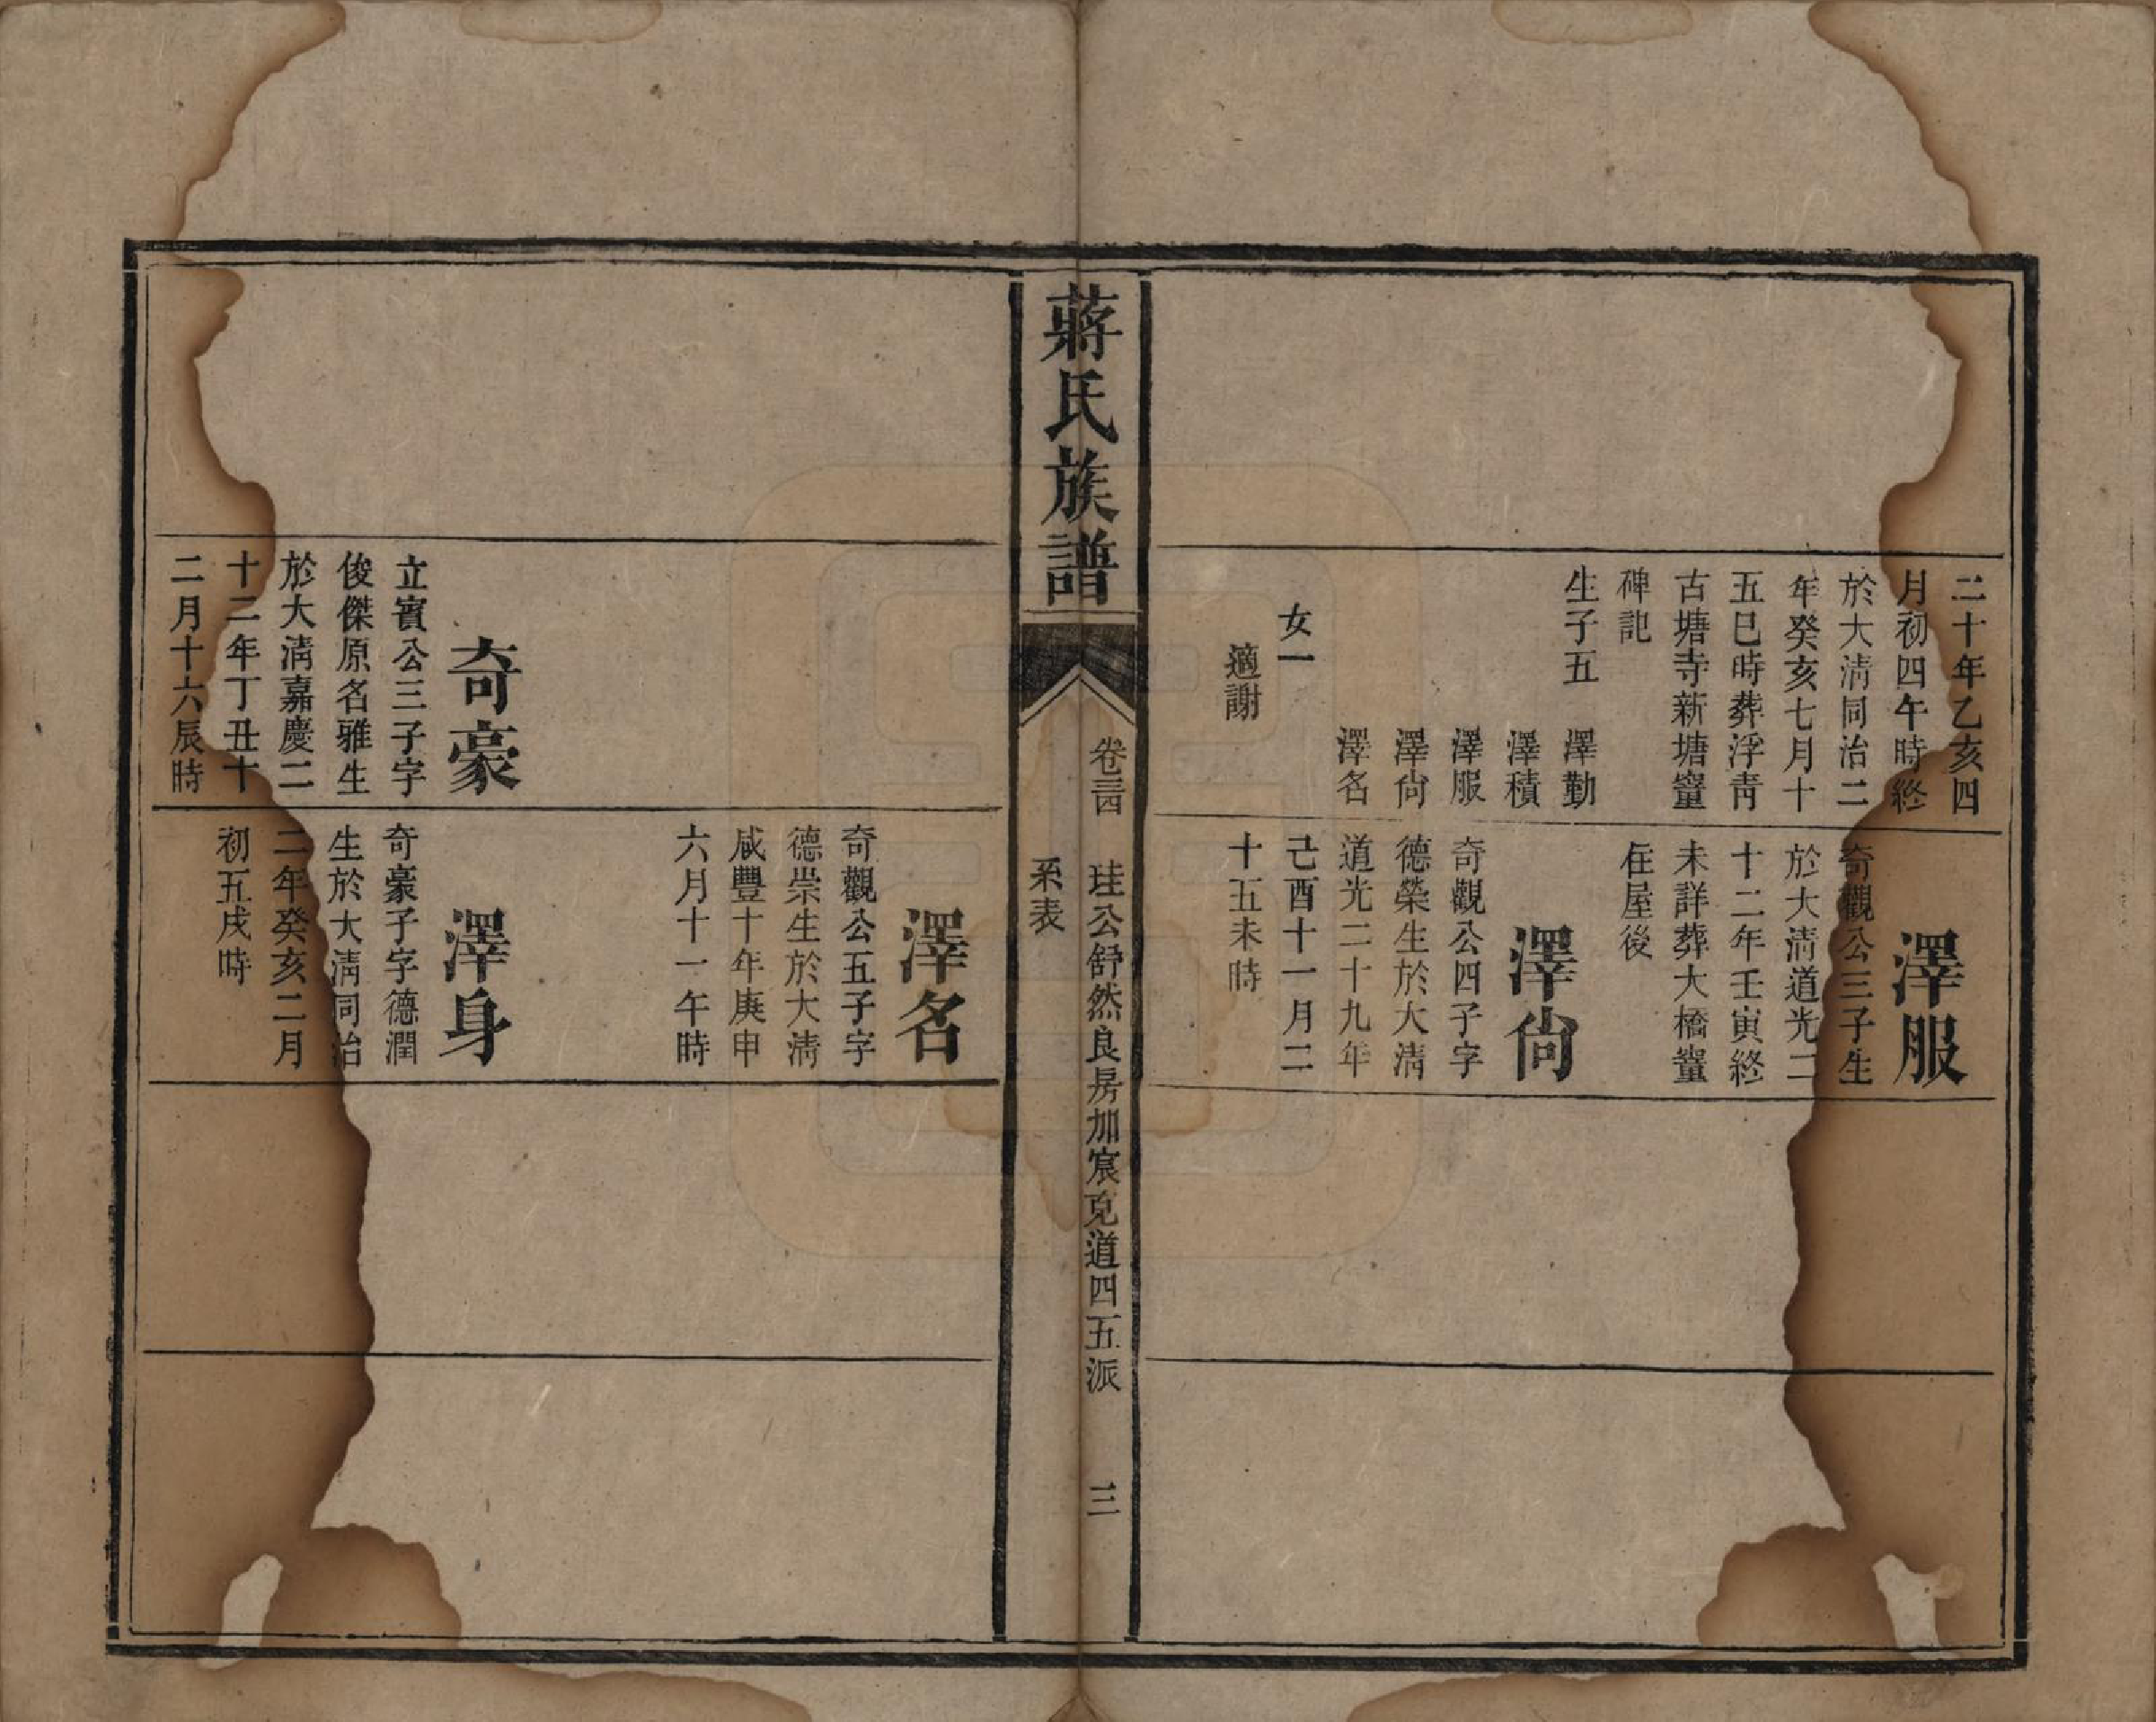 二十年乙亥四
月初四午時終
於大淸同治二
年癸亥七月十
五巳時葬浮靑
古塘寺新塘
碑記
生子五 澤勤
澤積
澤服
澤尙
澤名
女一
適謝
澤服
奇觀公三子生
於大淸道光二
十二年壬寅終
未詳葬大橋
住屋後
澤尙
奇觀公四子字
德榮生於大淸
道光二十九年
己酉十一月二
十五未時
蔣氏族譜
卷三四 珪公舒然良房加宸克道四五派 三
系表
奇豪
立賓公三子字
俊傑原名雅生
於大淸嘉慶二
十二年丁丑十
二月十六辰時
澤名
奇觀公五子字
德崇生於大淸
咸豐十年庚申
六月十一午時
澤身
奇豪子字德潤
生於大淸同治
二年癸亥二月
初五戌時